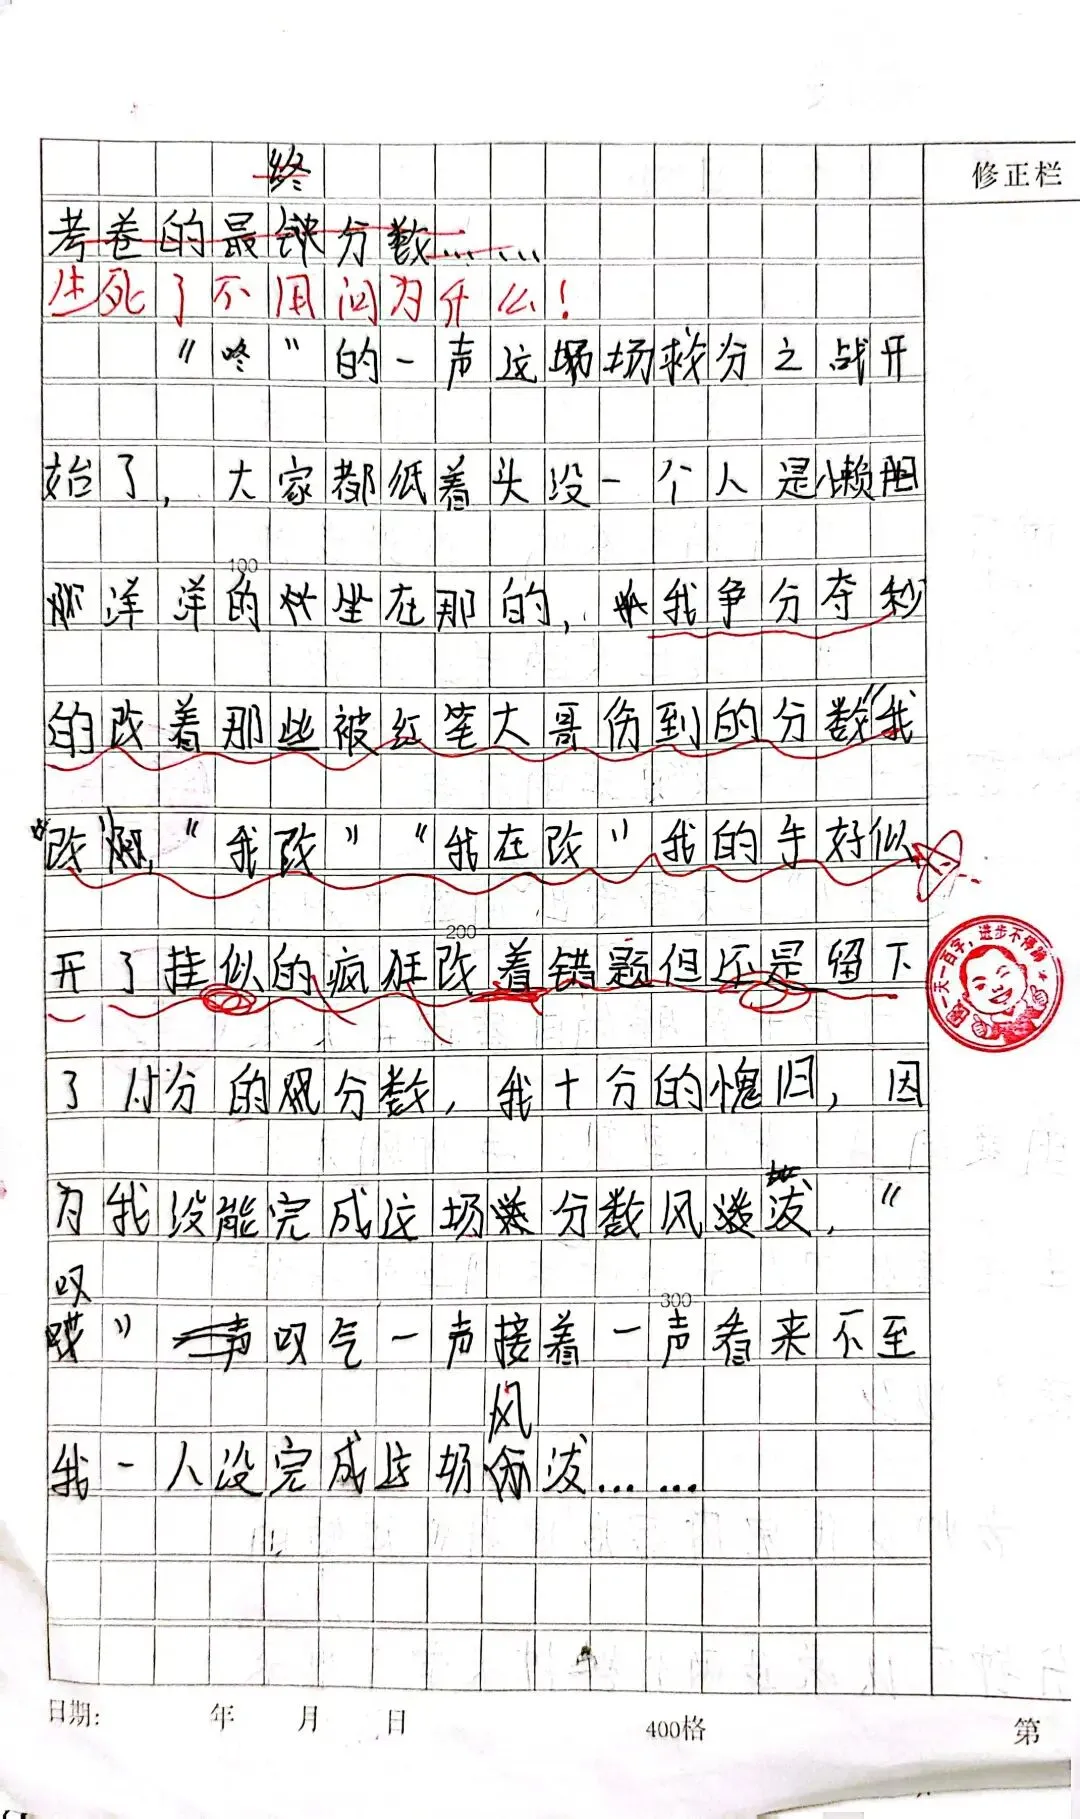 修正栏
终
考卷的最分数……
生死了不用问为什么！
“咚”的一声这场救分之战开
始了，大家都纸着头没一个人是懒
洋洋的坐在那的，我争分夺秒
的改着那些被红笔大哥伤到的分数“我
改”“我改”“我在改”我的手好似
开了挂似的疯狂改着错题但还是留下
了的分数，我十分的愧旧，因
为我没能完成这场分数风波，“
叹
”叹气一声接着一声看来不至
风
我一人没完成这场波……
100
200
300
一天一百字，进步不停
日期：
年 月 日
400格
第